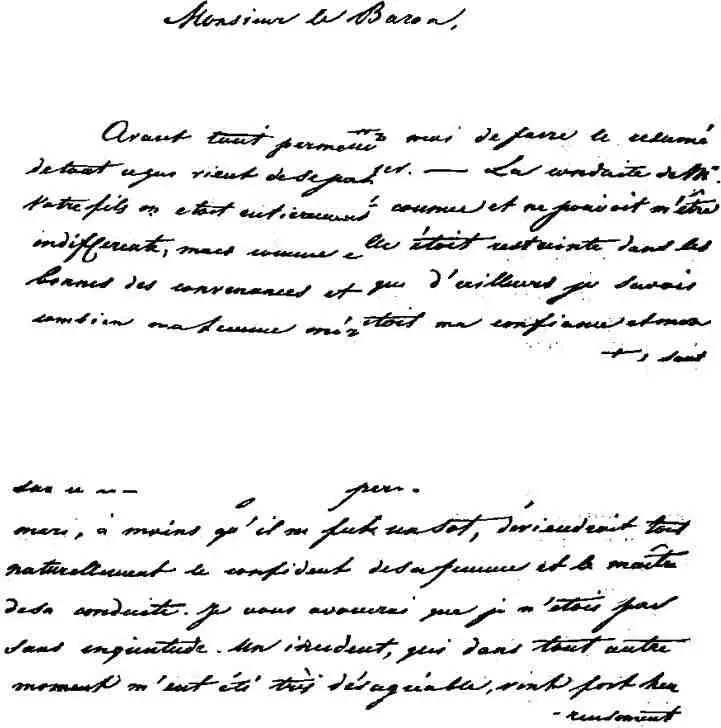 Monsieur le Baron,
Avant tout permettez moi de faire le resumé
de tout ce qui vient de se passer. — La conduite de Mr
votre fils m'etoit entierement connue et ne pouvoit m'être
indifferente, mais comme elle étoit restreinte dans les
bornes des convenances et que d'ailleurs je savois
combien ma femme méritoit ma confiance et mon
mari, à moins qu'il ne fut un sot, deviendroit tout
naturellement le confident de sa femme et le maître
de sa conduite. Je vous avouerai que je n'étois pas
sans inquietude. Un incident, qui dans tout autre
moment m'eut été très désagréable, vint fort heu
-reusement